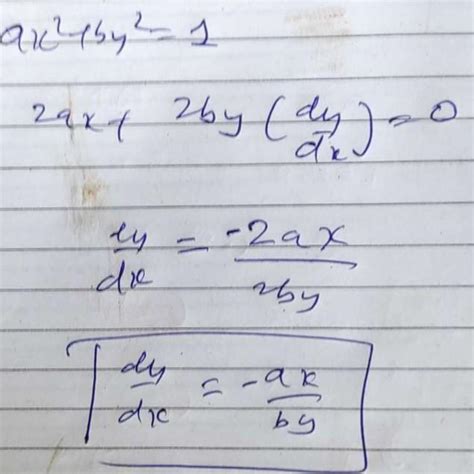 ax² + by² = 1
2ax + 2by (dy/dx) = 0
dy/dx = -2ax/2by
dy/dx = -ax/by